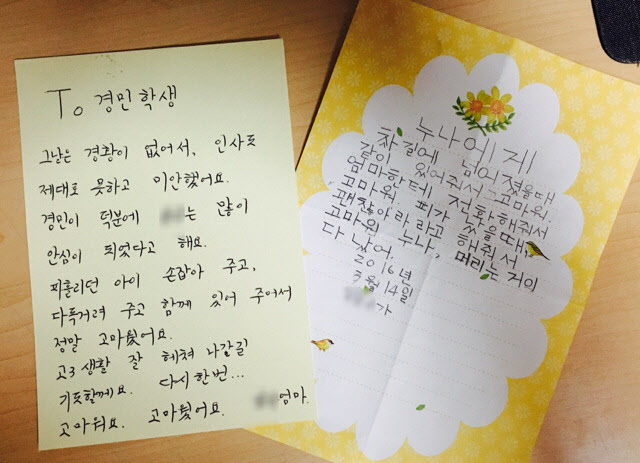 To 경민 학생
그날은 경황이 없어서, 인사도
제대로 못하고 미안했어요.
경민이 덕분에 는 많이
안심이 되었다고 해요.
피흘리던 아이 손잡아 주고,
다독거려 주고 함께 있어 주어서
정말 고마웠어요.
고3 생활 잘 헤쳐 나가길
기도할께요. 다시 한번...
고마워요. 고마웠어요. 엄마.
누나에게
차 길에 넘어졌을때
같이 있어줘서 고마워.
엄마한테 전화해줘서
고마워. 피가 났을때,
괜찮아라라고 해줘서
고마워 누나, 머리는 거의
다 났어.
2016년
3월 14일
가